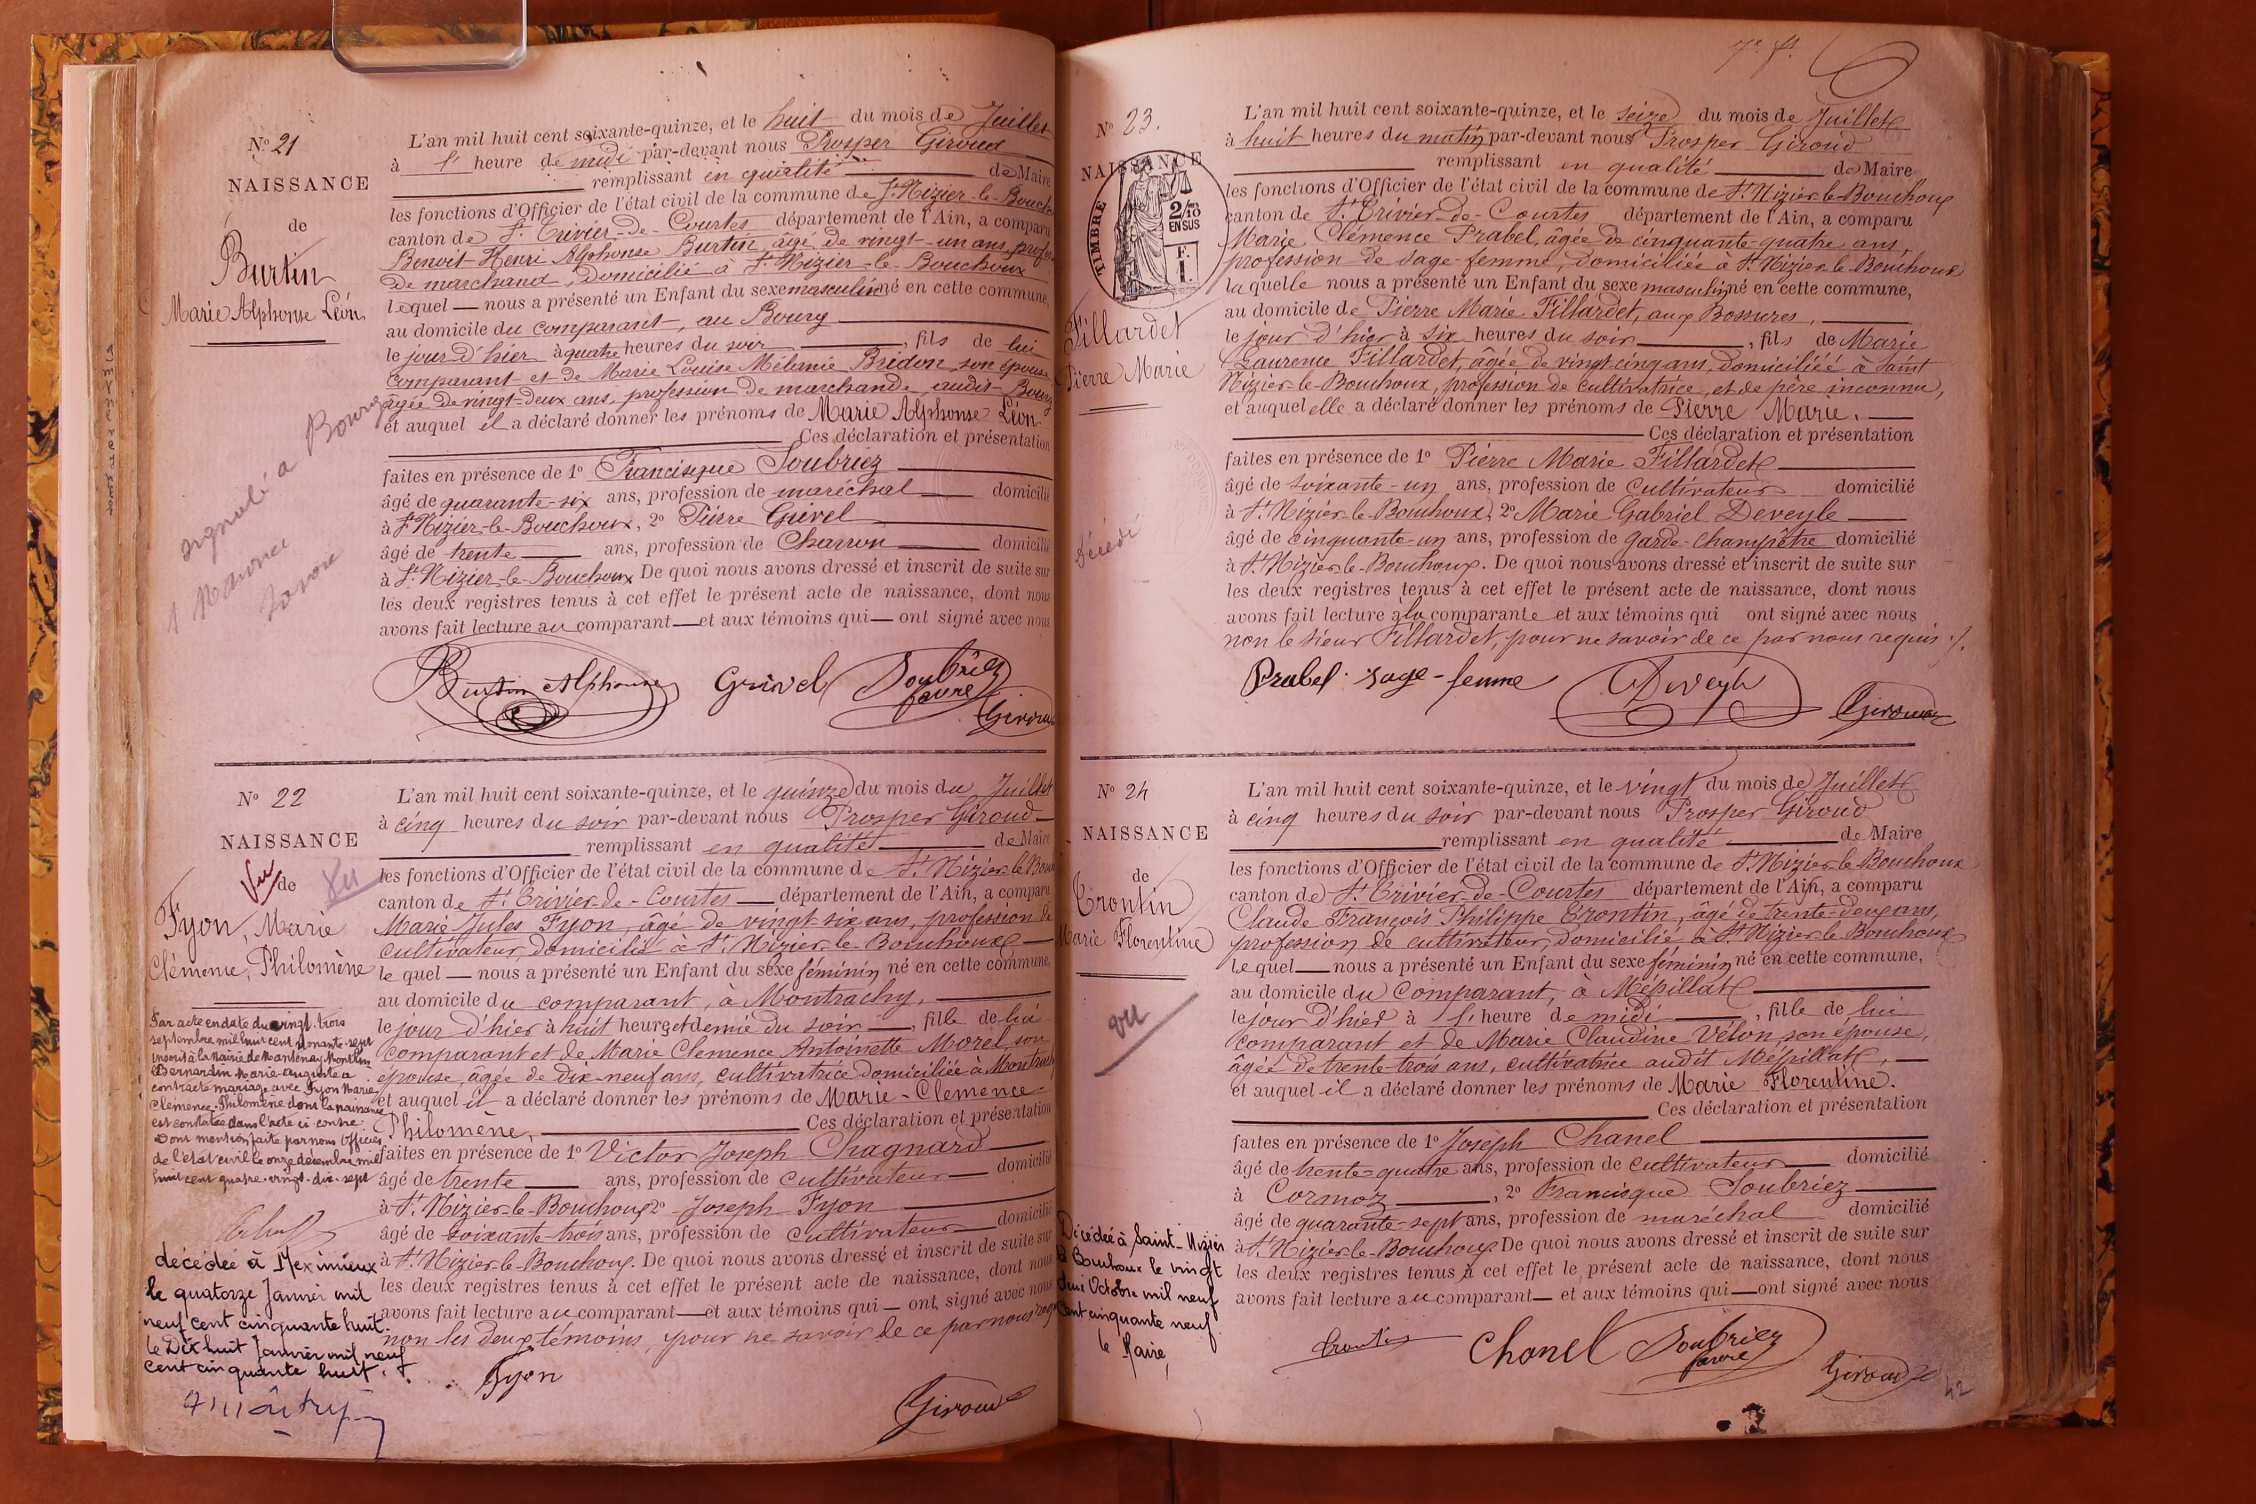 N° 21
NAISSANCE
de
Burtin
Marie Alphonse Léon
L'an mil huit cent soixante-quinze, et le huit du mois de Juillet
à 1 heure de midi par-devant nous Prosper Giroud
remplissant en qualité de Maire
les fonctions d'Officier de l'état civil de la commune de St Nizier-le-Bouch
canton de St Trivier-de-Courtes département de l'Ain, a comparu
Benoit Henri Alphonse Burtin, âgé de vingt-un ans, profes
de marchand, domicilié à St Nizier-le-Bouchoux
lequel nous a présenté un Enfant du sexe masculin né en cette commune,
au domicile du comparant, au Bourg
le jour d'hier à quatre heures du soir, fils de lui
comparant et de Marie Louise Mélanie Bridon, son épouse
âgée de vingt-deux ans, profession de marchande, audit Bourg
et auquel il a déclaré donner les prénoms de Marie Alphonse Léon
Ces déclaration et présentation
faites en présence de 1° Francisque Soubriez
âgé de quarante-six ans, profession de maréchal domicilié
à St Nizier-le-Bouchoux, 2° Pierre Gu
âgé de trente ans, profession de Charron domicilié
à St Nizier-le-Bouchoux De quoi nous avons dressé et inscrit de suite sur
les deux registres tenus à cet effet le présent acte de naissance, dont nous
avons fait lecture au comparant et aux témoins qui ont signé avec nous
signalé à Bourg
Burtin Alphonse
Soubriez
favre
Giroud
N° 22
NAISSANCE
de
Vu
Vu
Fyon, Marie
Clémence, Philomène
L'an mil huit cent soixante-quinze, et le quinze du mois du Juillet
à cinq heures du soir par-devant nous Prosper Giroud
remplissant en qualité de Maire
les fonctions d'Officier de l'état civil de la commune de St Nizier-le-Bou
canton de St Trivier-de-Courtes département de l'Ain, a comparu
Marie Jules Fyon, âgé de vingt six ans, profession de
cultivateur, domicilié à St Nizier-le-Bouchoux
le quel nous a présenté un Enfant du sexe féminin né en cette commune,
au domicile du comparant, à Montrachy,
le jour d'hier à huit heures et demie du soir, fille de lui
comparant et de Marie Clemence Antoinette Morel, son
épouse, âgée de dix-neuf ans, cultivatrice domiciliée à Montrach
et auquel il a déclaré donner les prénoms de Marie-Clemence-
Philomène, Ces déclaration et présentation
faites en présence de 1° Victor Joseph Chagnard
âgé de trente ans, profession de cultivateur domicilié
à St Nizier-le-Bouchoux 2° Joseph Fyon
âgé de soixante-trois ans, profession de cultivateur domicilié
à St Nizier-le-Bouchoux. De quoi nous avons dressé et inscrit de suite sur
les deux registres tenus à cet effet le présent acte de naissance, dont nous
avons fait lecture au comparant et aux témoins qui ont signé avec nous
non les deux témoins, pour ne savoir de ce par nous requis
Fyon
Giroud
Par acte en date du vingt-trois
septembre mil huit cent nonante-sept
inscrit à la Mairie de Mantenay Montlin
Bernardin Marie-auguste a
contracté mariage avec Fyon Marie
Clémence-Philomène dont la naissance
est constatée dans l'acte ci contre
Dont mention faite par nous Officier
de l'état civil le onze décembre mil
huit cent quatre-vingt-dix-sept
décédée à Meximieux
le quatorze Janvier mil
neuf cent cinquante huit.
le Dix huit Janvier mil neuf
cent cinquante huit.
7e ft
N° 23.
NAISSANCE
TIMBRE
2/10
EN SUS
F.
1.
Fillardet
Pierre Marie
L'an mil huit cent soixante-quinze, et le seize du mois de Juillet
à huit heures du matin par-devant nous Prosper Giroud
remplissant en qualité de Maire
les fonctions d'Officier de l'état civil de la commune de St Nizier-le-Bouchoux
canton de St Trivier-de-Courtes département de l'Ain, a comparu
Marie Clémence Prabel, âgée de cinquante-quatre ans,
profession de sage-femme, domiciliée à St Nizier-le-Bouchoux
la quelle nous a présenté un Enfant du sexe masculin né en cette commune,
au domicile de Pierre Marie Fillardet, aux Bossures,
le jour d'hier à six heures du soir, fils de Marie
Laurence Fillardet, âgée de vingt cinq ans, domiciliée à Saint
Nizier-le-Bouchoux, profession de cultivatrice, et de père inconnu,
et auquel elle a déclaré donner les prénoms de Pierre Marie.
Ces déclaration et présentation
faites en présence de 1° Pierre Marie Fillardet
âgé de soixante-un ans, profession de cultivateur domicilié
à St Nizier-le-Bouchoux, 2° Marie Gabriel Deveyle
âgé de cinquante-un ans, profession de garde-champêtre domicilié
à St Nizier-le-Bouchoux. De quoi nous avons dressé et inscrit de suite sur
les deux registres tenus à cet effet le présent acte de naissance, dont nous
avons fait lecture à la comparante et aux témoins qui ont signé avec nous
non le sieur Fillardet, pour ne savoir de ce par nous requis ./.
décédé
Prabel. sage-femme
Deveyle
Giroud
N° 24
NAISSANCE
de
Trontin
Marie Florentine
vu
L'an mil huit cent soixante-quinze, et le vingt du mois de Juillet
à cinq heures du soir par-devant nous Prosper Giroud
remplissant en qualité de Maire
les fonctions d'Officier de l'état civil de la commune de St Nizier-le-Bouchoux
canton de St Trivier-de-Courtes département de l'Ain, a comparu
Claude François Philippe Trontin, âgé de trente-deux ans,
profession de cultivateur, domicilié à St Nizier-le-Bouchoux
le quel nous a présenté un Enfant du sexe féminin né en cette commune,
au domicile du comparant, à Mépillat
le jour d'hier à 1 heure de midi, fille de lui
comparant et de Marie Claudine Vélon, son épouse,
âgée de trente trois ans, cultivatrice audit Mépillat,
et auquel il a déclaré donner les prénoms de Marie Florentine.
Ces déclaration et présentation
faites en présence de 1° Joseph Chanel
âgé de trente-quatre ans, profession de cultivateur domicilié
à Cormoz, 2° Francisque Soubriez
âgé de quarante-sept ans, profession de maréchal domicilié
à St Nizier-le-Bouchoux De quoi nous avons dressé et inscrit de suite sur
les deux registres tenus à cet effet le présent acte de naissance, dont nous
avons fait lecture au comparant et aux témoins qui ont signé avec nous
Décédée à Saint-Nizier
le Bouchoux le vingt
deux Octobre mil neuf
cent cinquante neuf.
le Maire,
Trontin
Chanel
Soubriez
favre
Giroud
42